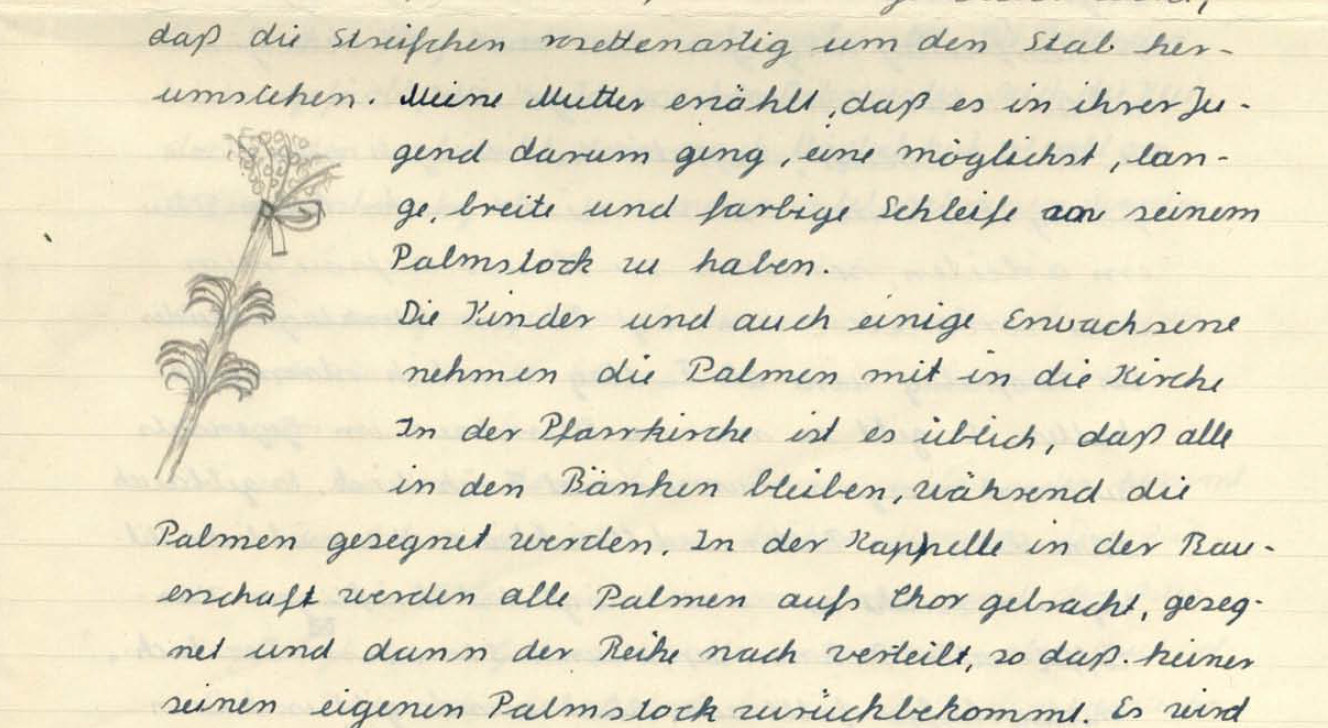 daß die Streifchen rosettenartig um den Stab her-
umstehen. Meine Mutter erzählt, daß es in ihrer Ju-
gend darum ging, eine möglichst, lan-
ge, breite und farbige Schleife an seinem
Palmstock zu haben.
Die Kinder und auch einige Erwachsene
nehmen die Palmen mit in die Kirche
In der Pfarrkirche ist es üblich, daß alle
in den Bänken bleiben, während die
Palmen gesegnet werden. In der Kappelle in der Bau-
erschaft werden alle Palmen aufs Chor gebracht, geseg-
net und dann der Reihe nach verteilt, so daß keiner
seinen eigenen Palmstock zurückbekommt. Es wird